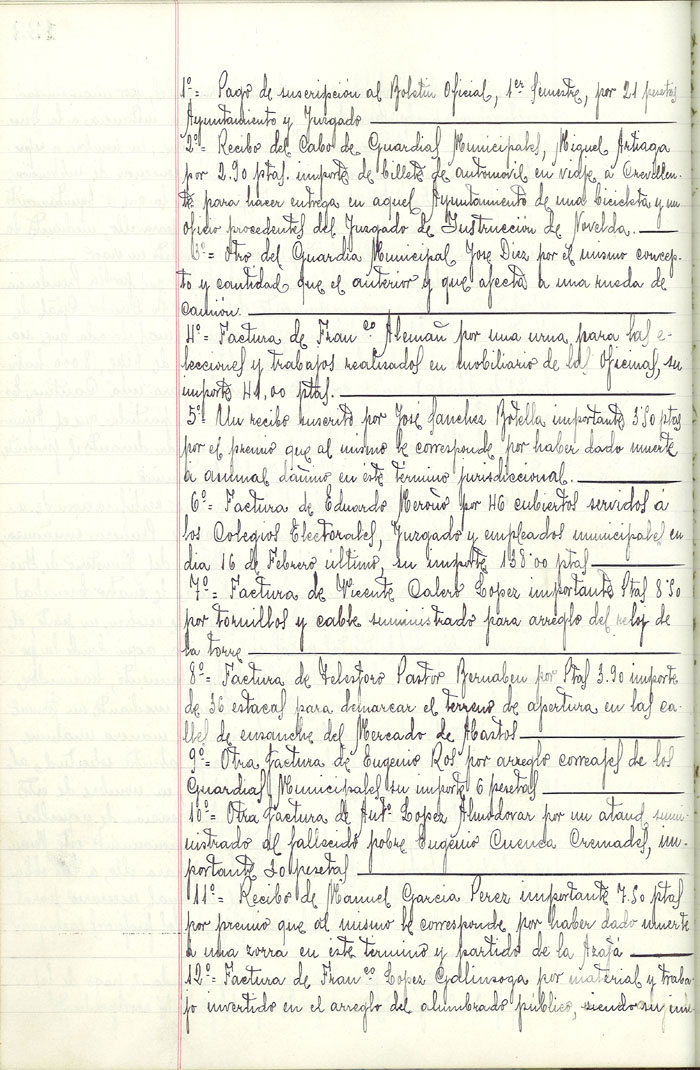 1º= Pago de suscripción al Boletín Oficial, 1er Semestre, por 21 pesetas
Ayuntamiento y Juzgado
2º= Recibo del Cabo de Guardias Municipales, Miguel Artiaga
por 2.90 ptas. importe de billete de automovil en viaje a Crevillen-
te para hacer entrega en aquel Ayuntamiento de una bicicleta y un
oficio procedentes del Juzgado de Instrucción de Novelda.
3º= Otro del Guardia Municipal José Diez por el mismo concep-
to y cantidad que el anterior y que afecta a una rueda de
camión.
4º= Factura de Franco Alemañ por una urna para las e-
lecciones y trabajos realizados en mobiliario de las Oficinas, su
importe 41,00 ptas.
5º= Un recibo suscrito por José Sanchez Botella importante 3'50 ptas
por el premio que al mismo le corresponde por haber dado muerte
a animal dañino en este termino jurisdiccional.
6º= Factura de Eduardo Meroño por 46 cubiertos servidos a
los Colegios Electorales, Juzgado y empleados municipales en
dia 16 de Febrero último, su importe 138'00 ptas
7º= Factura de Vicente Calero Lopez importante Ptas 8'50
por tornillos y cable suministrado para arreglo del reloj de
la torre
8º= Factura de Telesforo Pastor Bernabeu por Ptas 3.90 importe
de 36 estacas para demarcar el terreno de apertura en las ca-
lles de ensanche del Mercado de Abastos
9º= Otra factura de Eugenio Ros por arreglo correajes de los
Guardias Municipales su importe 6 pesetas
10º= Otra factura de Antº Lopez Almodovar por un ataud sumi-
nistrado al fallecido pobre Eugenio Cuenca Cremades, im-
portante 20 pesetas
11º= Recibo de Manuel Garcia Perez importante 7.50 ptas
por premio que al mismo le corresponde por haber dado muerte
a una zorra en este termino y partido de la
12º= Factura de Franco Lopez Galinsoga por material y traba-
jo invertido en el arreglo del alumbrado público, siendo su im-